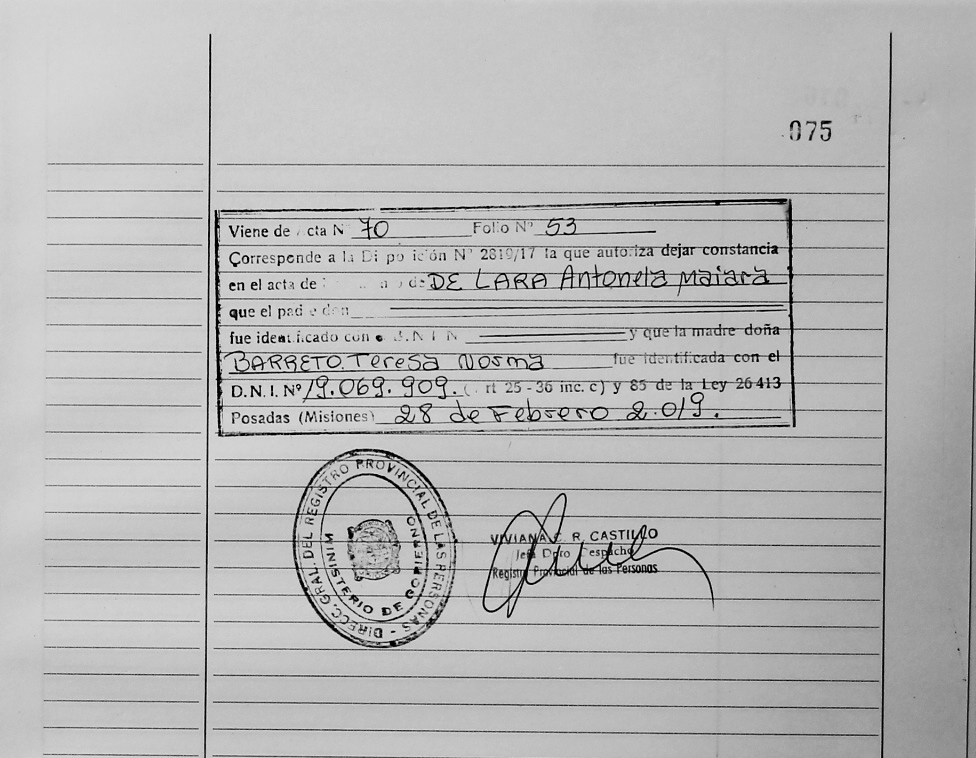 075
Viene de cta N 70 Folio Nº 53
Corresponde a la Di po ición Nº 2819/17 la que autoriza dejar constancia
en el acta de de DE LARA Antonela Maiara
que el pad e don
fue identificado con D.N.I. N y que la madre doña
BARRETO. Teresa Norma fue identificada con el
D.N.I. Nº 19.069.909. ( rt 25 - 36 inc. c) y 85 de la Ley 26413
Posadas (Misiones) 28 de Febrero 2.019.
DIRECC. GRAL. DEL REGISTRO PROVINCIAL DE LAS PERSONAS -
MINISTERIO DE GOBIERNO
VIVIANA C. R. CASTILLO
Jefa Dpto Despacho
Registro Provincial de las Personas